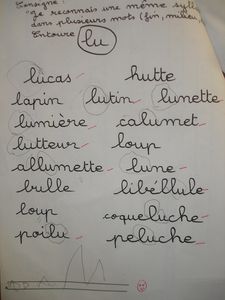 Consigne :
"Je reconnais une même syll
dans plusieurs mots (fin, milieu,
Entoure lu
lucas hutte
lapin lutin lunette
lumière calumet
lutteur loup
allumette lune
bulle libéllule
loup coqueluche
poilu peluche